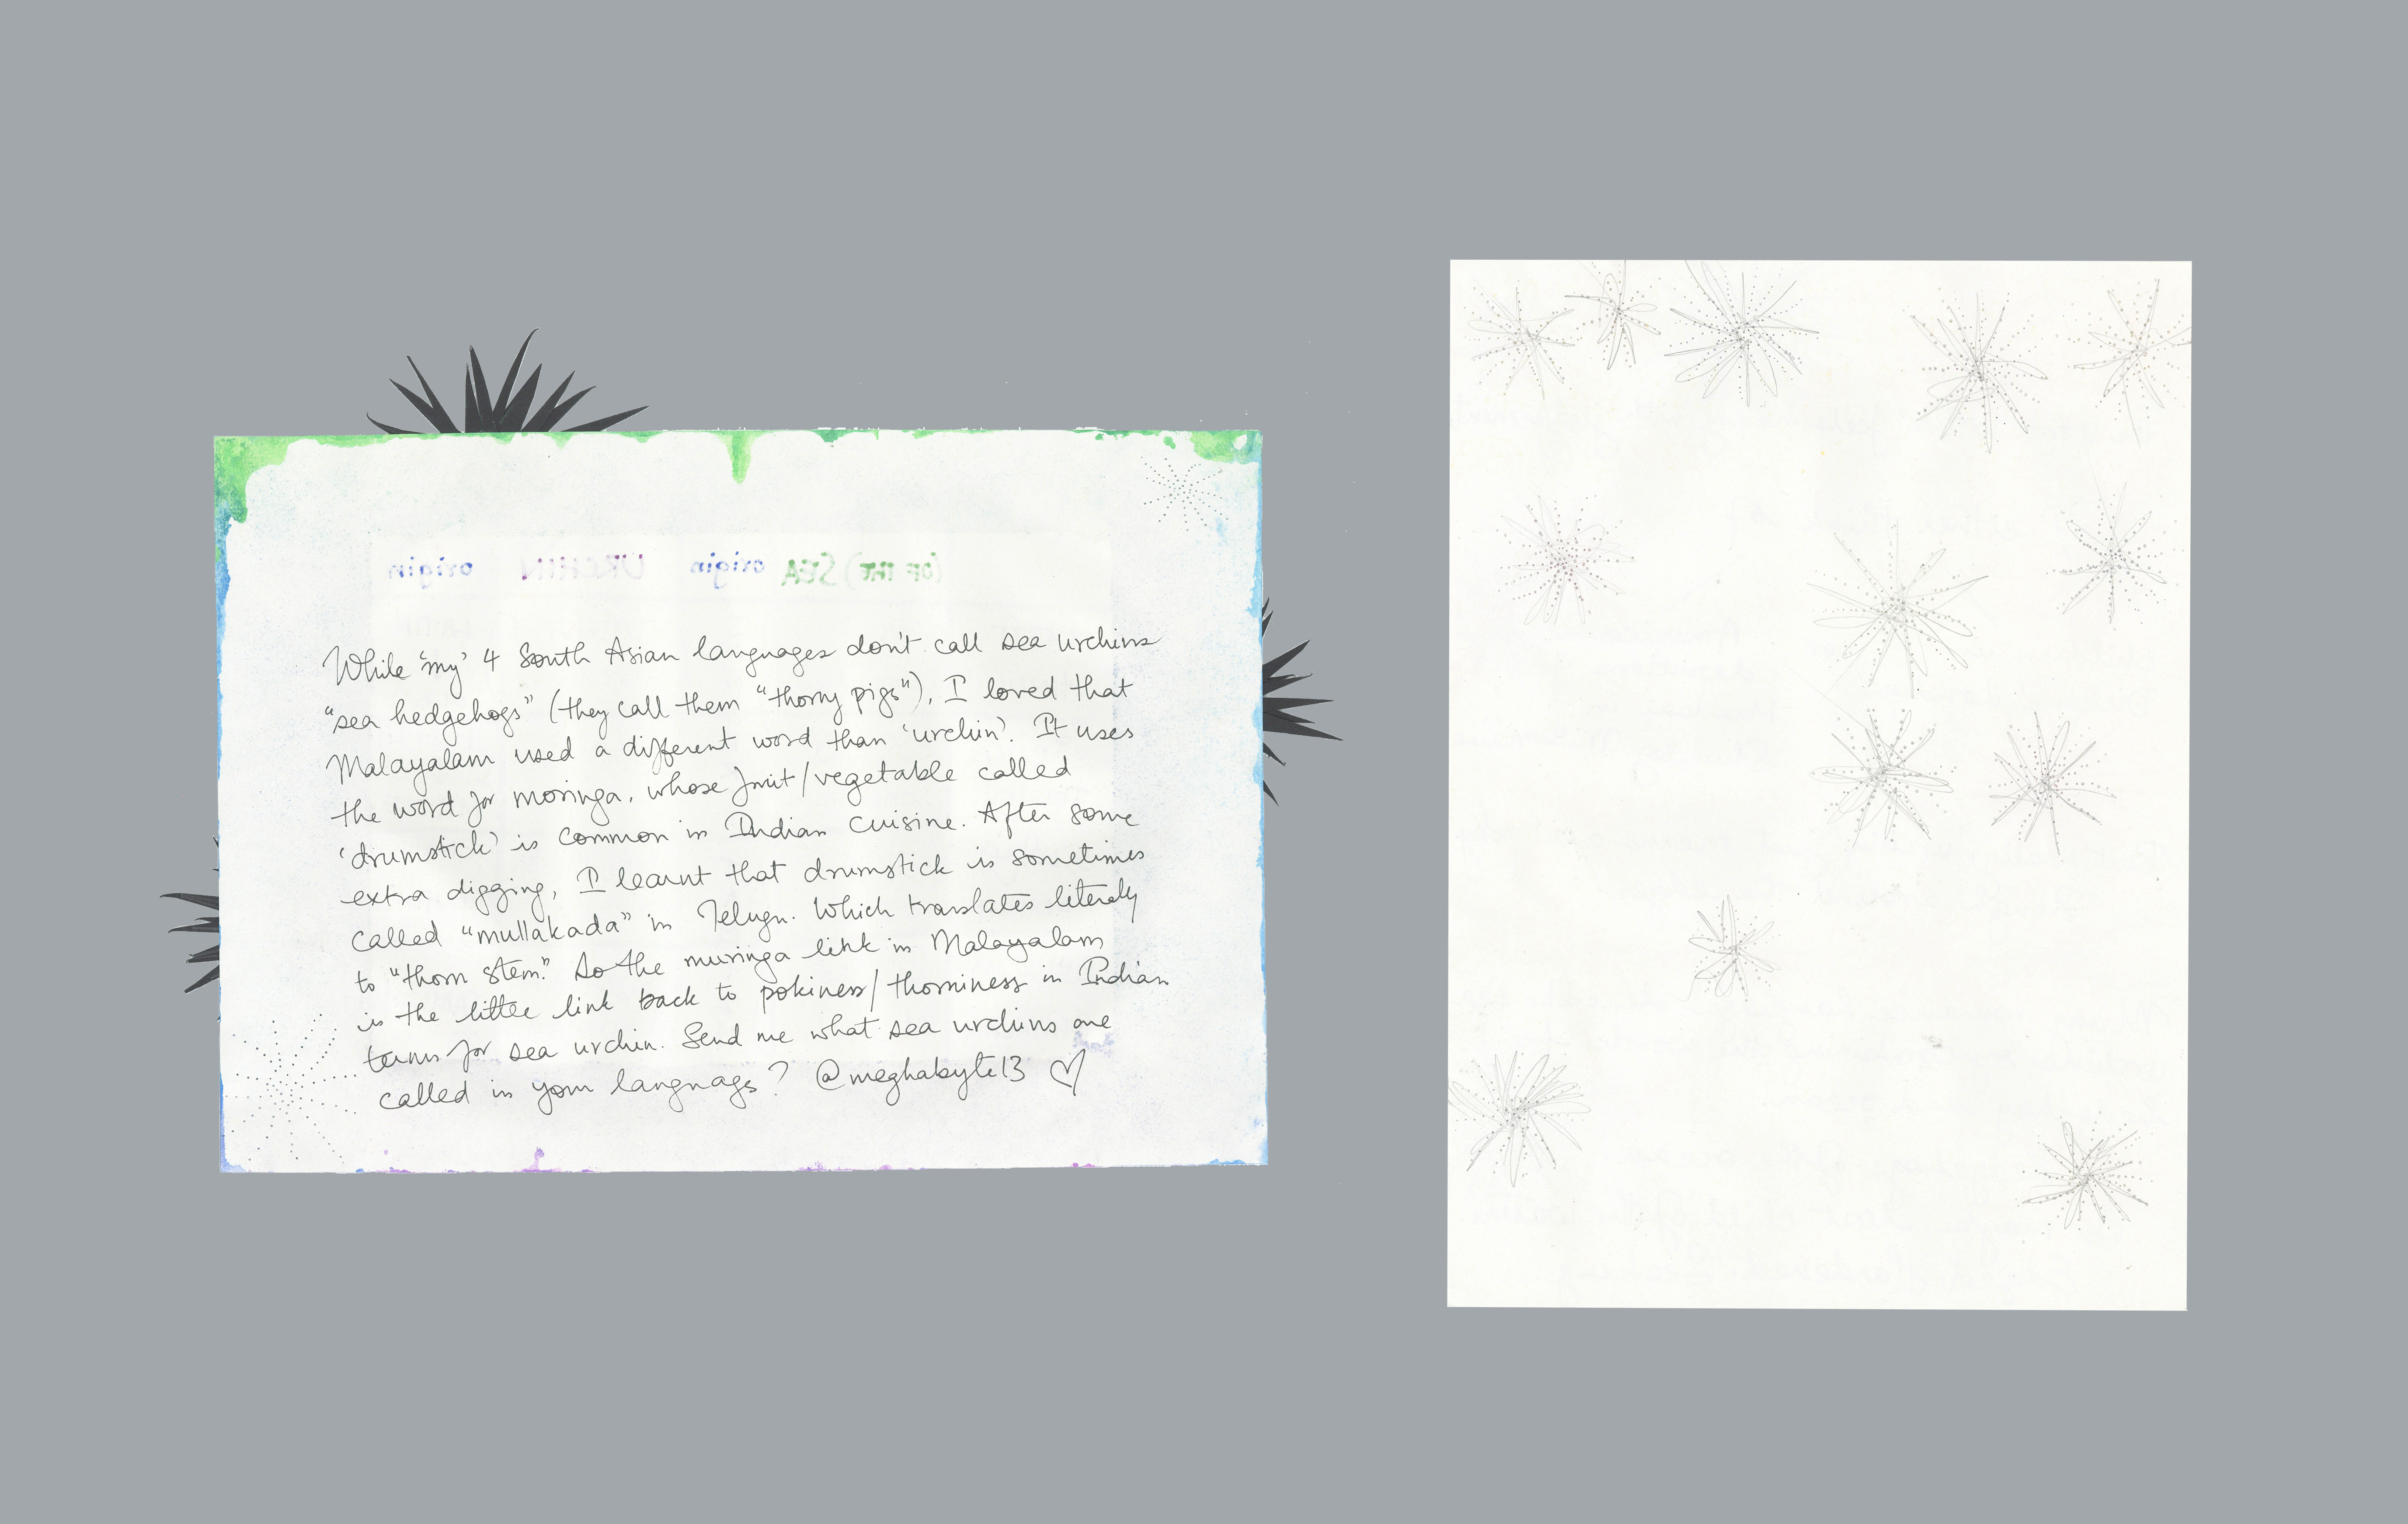 origin URCHIN origin SEA (OF THE)
While 'my' 4 South Asian languages don't call sea urchins
"sea hedgehogs" (they call them "thorny pigs"), I loved that
Malayalam used a different word than 'urchin'. It uses
the word for moringa, whose fruit/vegetable called
'drumstick' is common in Indian cuisine. After some
extra digging, I learnt that drumstick is sometimes
called "mullakada" in Telugu. Which translates literally
to "thorn stem." So the muringa link in Malayalam
is the little link back to pokiness/thorniness in Indian
terms for sea urchin. Send me what sea urchins are
called in your language? @meghabyte13 ♡